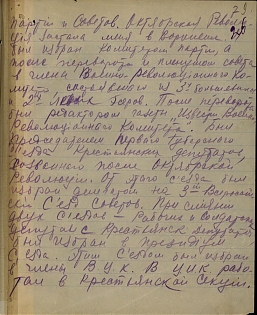 партии и Советов. Октябрская Револю-
ция застала меня в Воронеже. Я
был избран комитетом партии, а
после переворота и пленумом совета
в члены Военно Революционного Ко-
митета, состоявшего из 3х большевиков
и 2х Левых Эсеров. После переворота
был редактором газеты "Известия Военно
Революционного Комитета". Был
председателем Первого Губернского
Съезда Крестьянских депутатов,
созванного после Октябрской
Революции. От этого съезда был
избран делегатом на 3й Всероссий-
ский Съезд Советов. При слиянии
двух съездов - Рабочих и Солдатских
депутатов с Крестьянск. депутатами
был избран в президиум
Съезда. Этим Съездом был избран
в члены ВЦИК. В ЦИК рабо-
тал в Крестьянской секции.